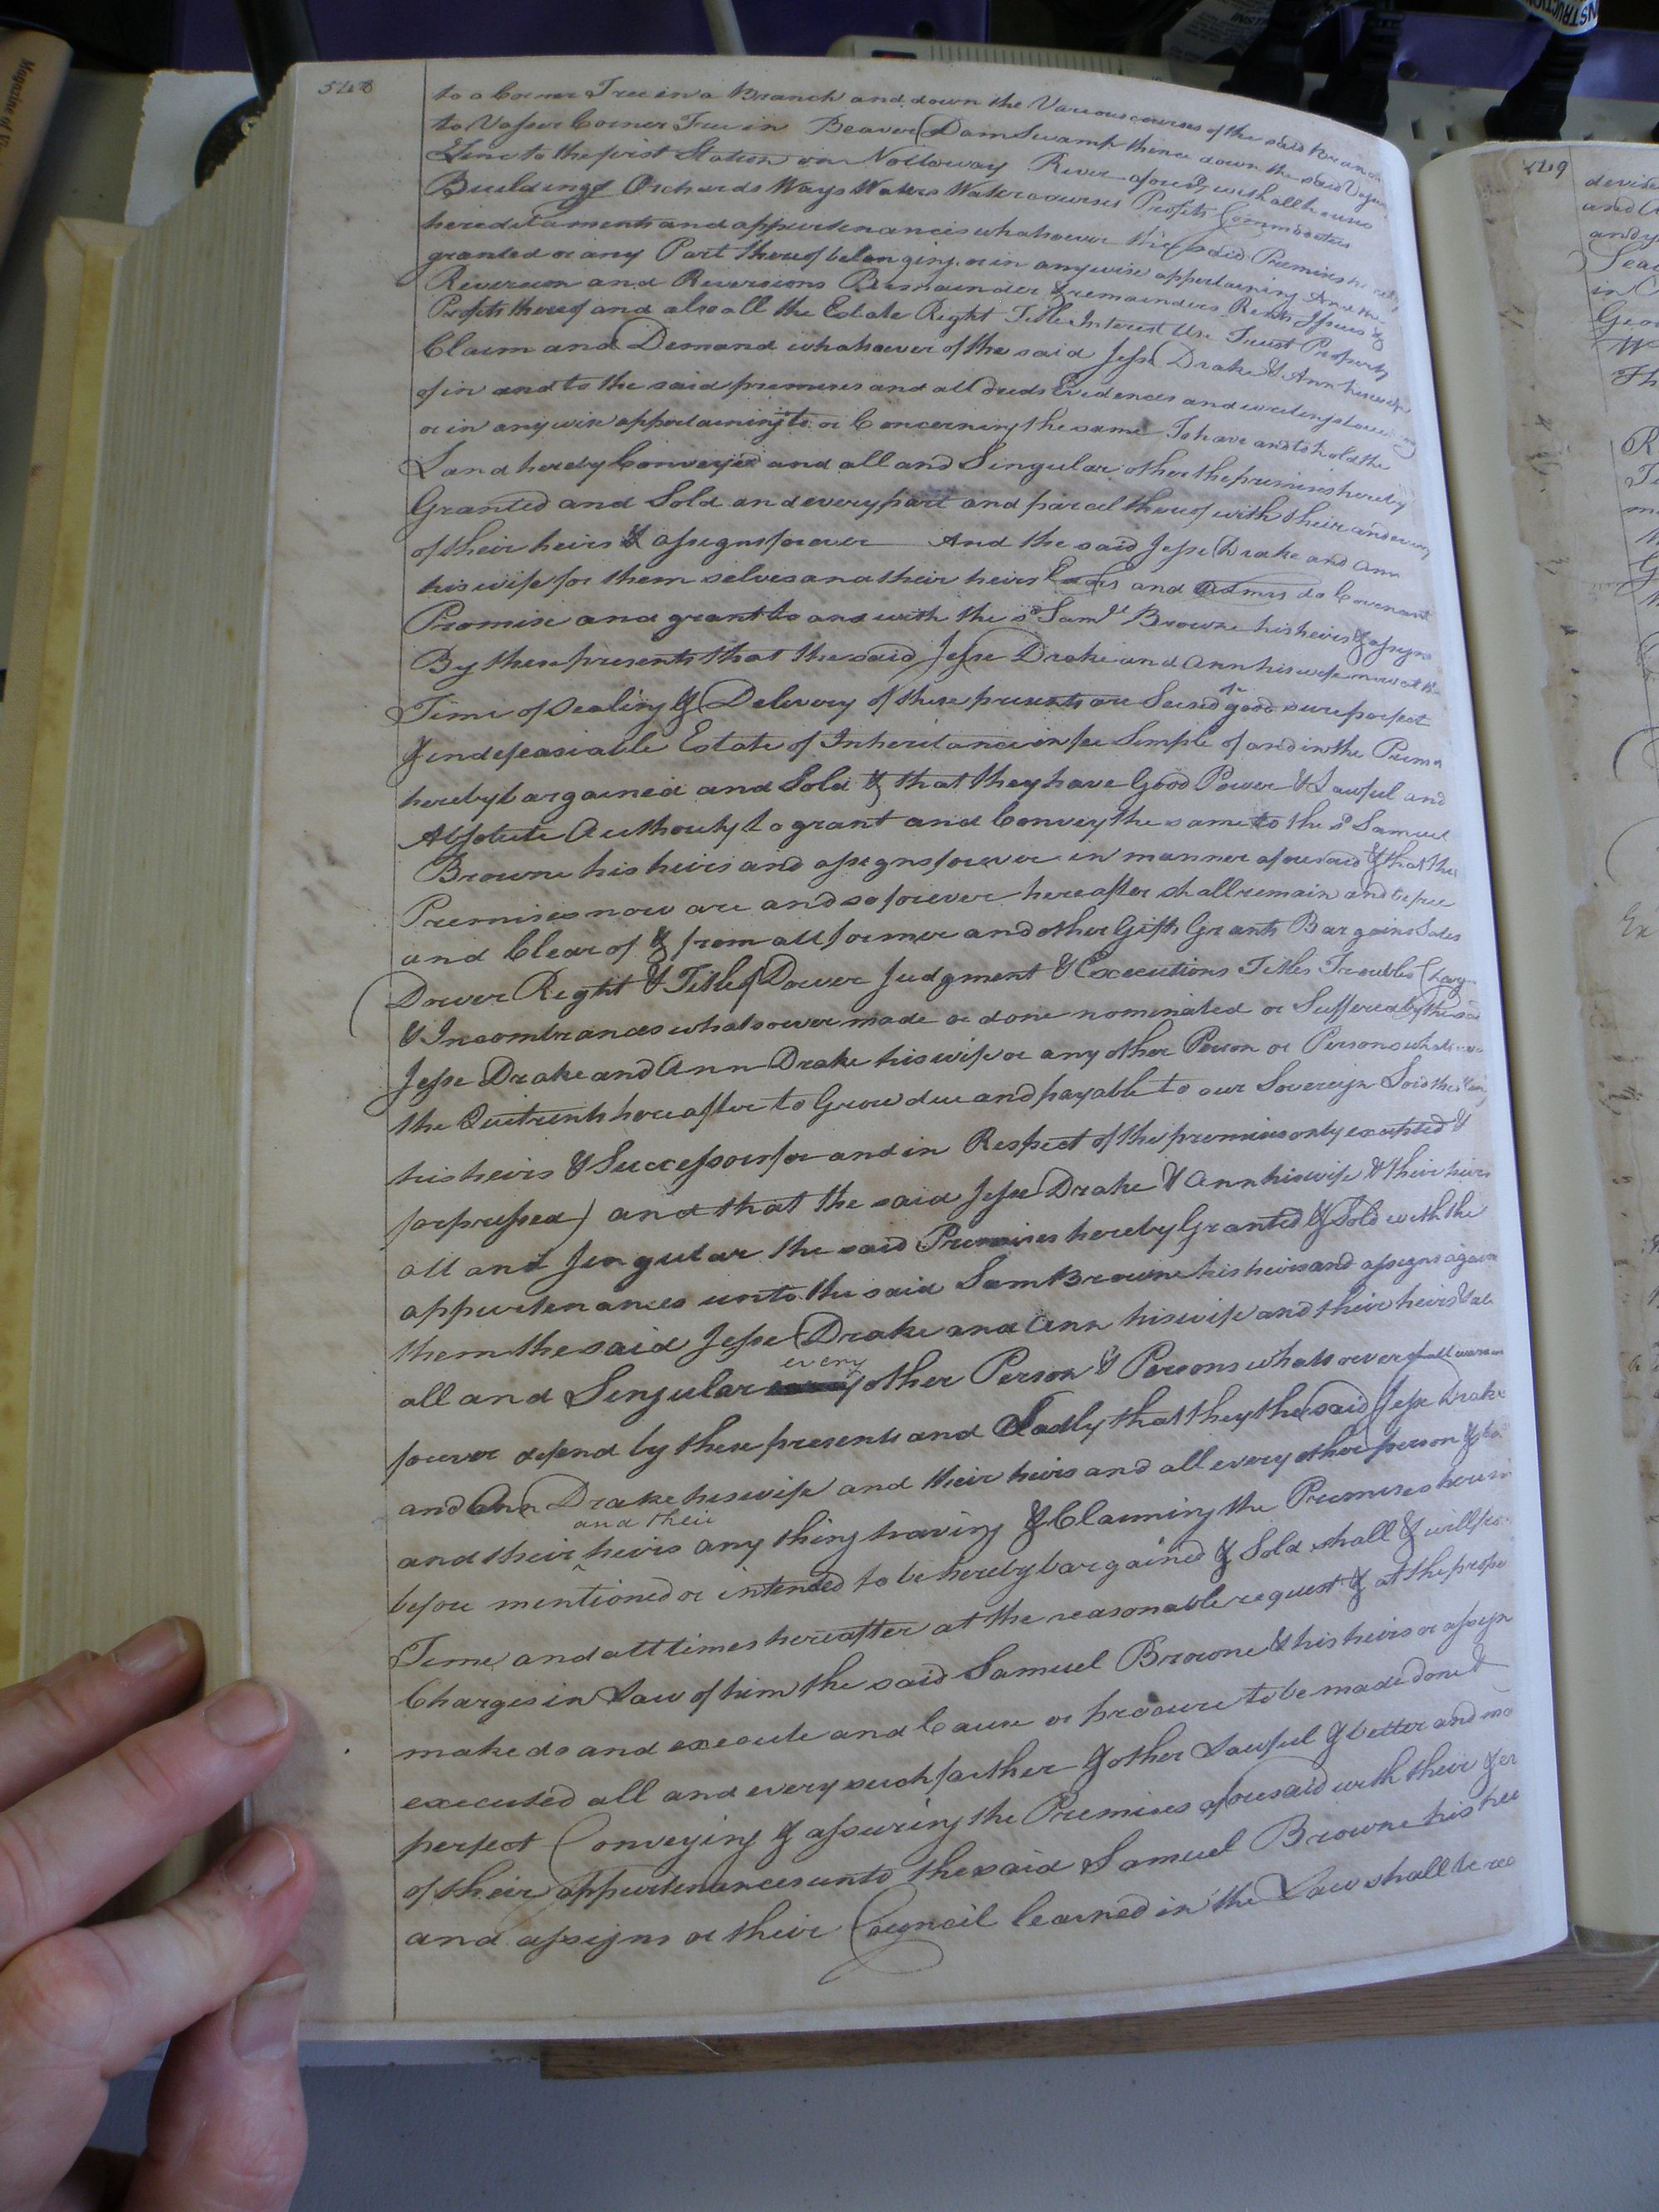 548
to a Corner Tree in a Branch and down the Various courses of the said Branch
to Vasser Corner Tree in Beaver Dam Swamp thence down the said
Line to the first Station on Nottoway River afores.d with all houses
Buildings Orchards Ways Waters Watercourses Profits Commodities
hereditaments and appurtenances whatsoever the said Premises
granted or any Part thereof belonging or in anywise appertaining And the
Reversion and Reversions Remainder & remainders Rents Issues &
Profits thereof and also all the Estate Right Title Interest Use Trust Property
Claim and Demand whatsoever of the said Jesse Drake & Ann his wife
of in and to the said premises and all deeds Evidences and writings
or in anywise appertaining to or Concerning the same To have and to hold the
Land hereby Conveyed and all and Singular other the premises hereby
Granted and Sold and every part and parcel thereof with their and every
of their heirs & assigns forever And the said Jesse Drake and Ann
his wife for them selves and their heirs Exors and Admrs do Covenant
Promise and grant to and with the s.d Sam.l Browne his heirs & assigns
By these presents that the said Jesse Drake and Ann his wife now at the
Time of Sealing & Delivery of these presents are Seised of good sure perfect
& indefeasiable Estate of Inheritance in fee Simple of and in the
hereby bargained and Sold & that they have Good Power & Lawful and
Absolute Authority to grant and Convey the same to the s.d Samuel
Browne his heirs and assigns forever in manner aforesaid & that the
Premises now are and so forever hereafter shall remain and be free
and Clear of & from all former and other Gifts Grants Bargains Sales
Dower Right & Title of Dower Judgment & Executions Titles Troubles
& Incombrances whatsoever made or done nominated or Suffered by the said
Jesse Drake and Ann Drake his wife or any other Person or Persons
the Quitrents hereafter to Grow due and payable to our Sovereign Lord the King
his heirs & Successors for and in Respect of the premises only excepted &
forpressed) and that the said Jesse Drake & Ann his wife & their heirs
all and Singular the said Premises hereby Granted & Sold with the
appurtenances unto the said Sam Browne his heirs and assigns again
them the said Jesse Drake and Ann his wife and their heirs &
all and Singular every other Person & Persons whatsoever shall
forever defend by these presents and Ladly that they the said Jesse Drake
and Ann Drake his wife and their heirs and all every other person &
and their and their heirs any thing having & Claiming the Premises
before mentioned or intended to be hereby bargained & Sold shall & will
Time and all times hereafter at the reasonable request & at the
Charges in Law of him the said Samuel Browne & his heirs or assign
make do and execute and Cause or procure to be made done &
executed all and every such farther & other Lawful & better and
perfect Conveying & assuring the Premises aforesaid with their &
of their appurtenances unto the said Samuel Browne his
and assigns or their Council learned in the Law shall be
549